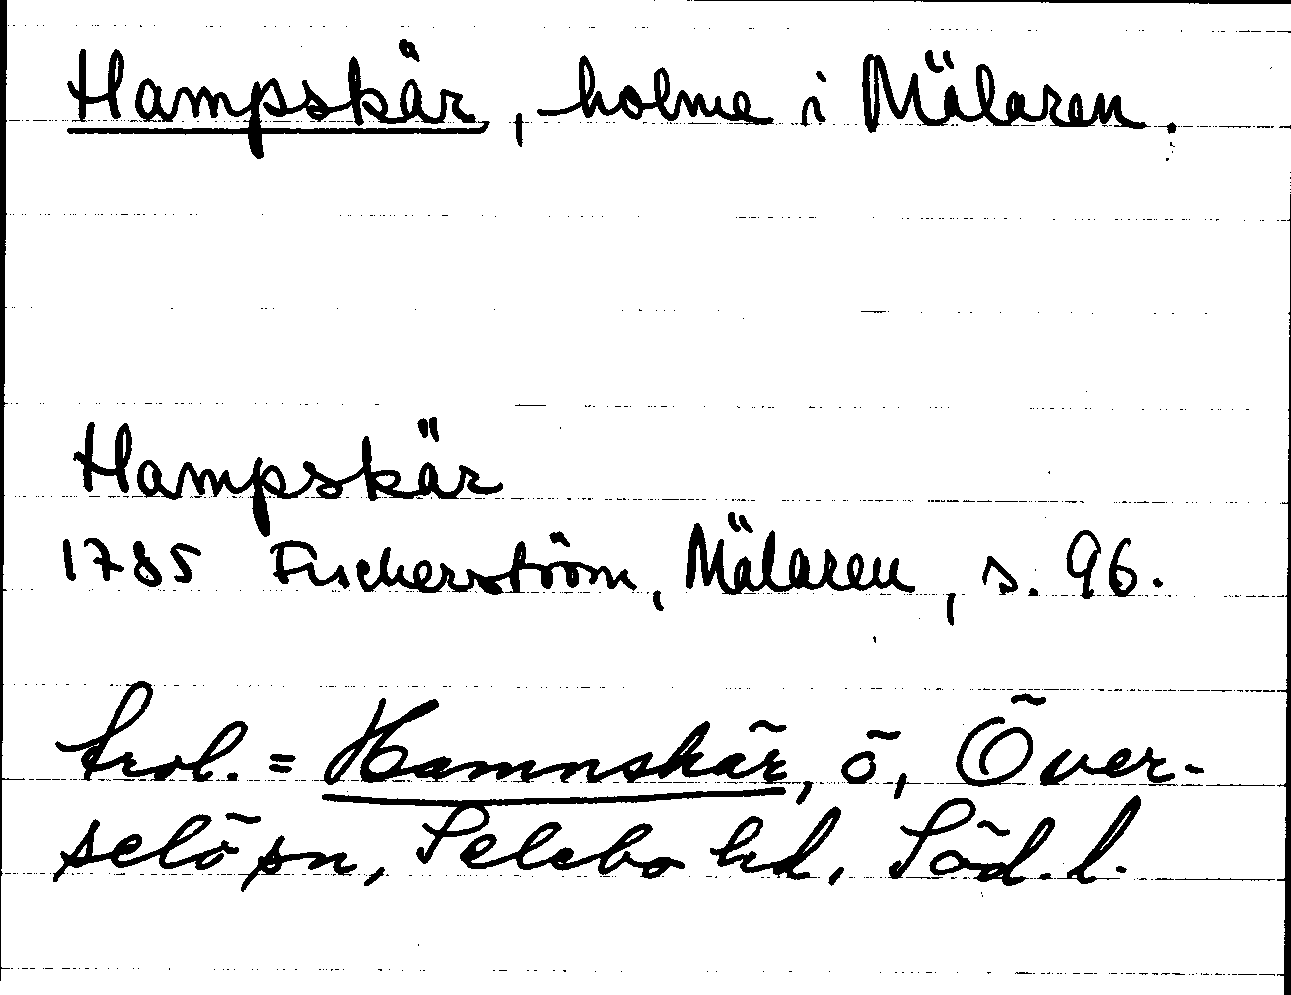 Hampskär, holme i Mälaren.
Hampskär
1785 Fischerström, Mälaren, s. 96.
trol. = Hamnskär, ö, Över-
selö sn, Selebo hd, Söd. l.